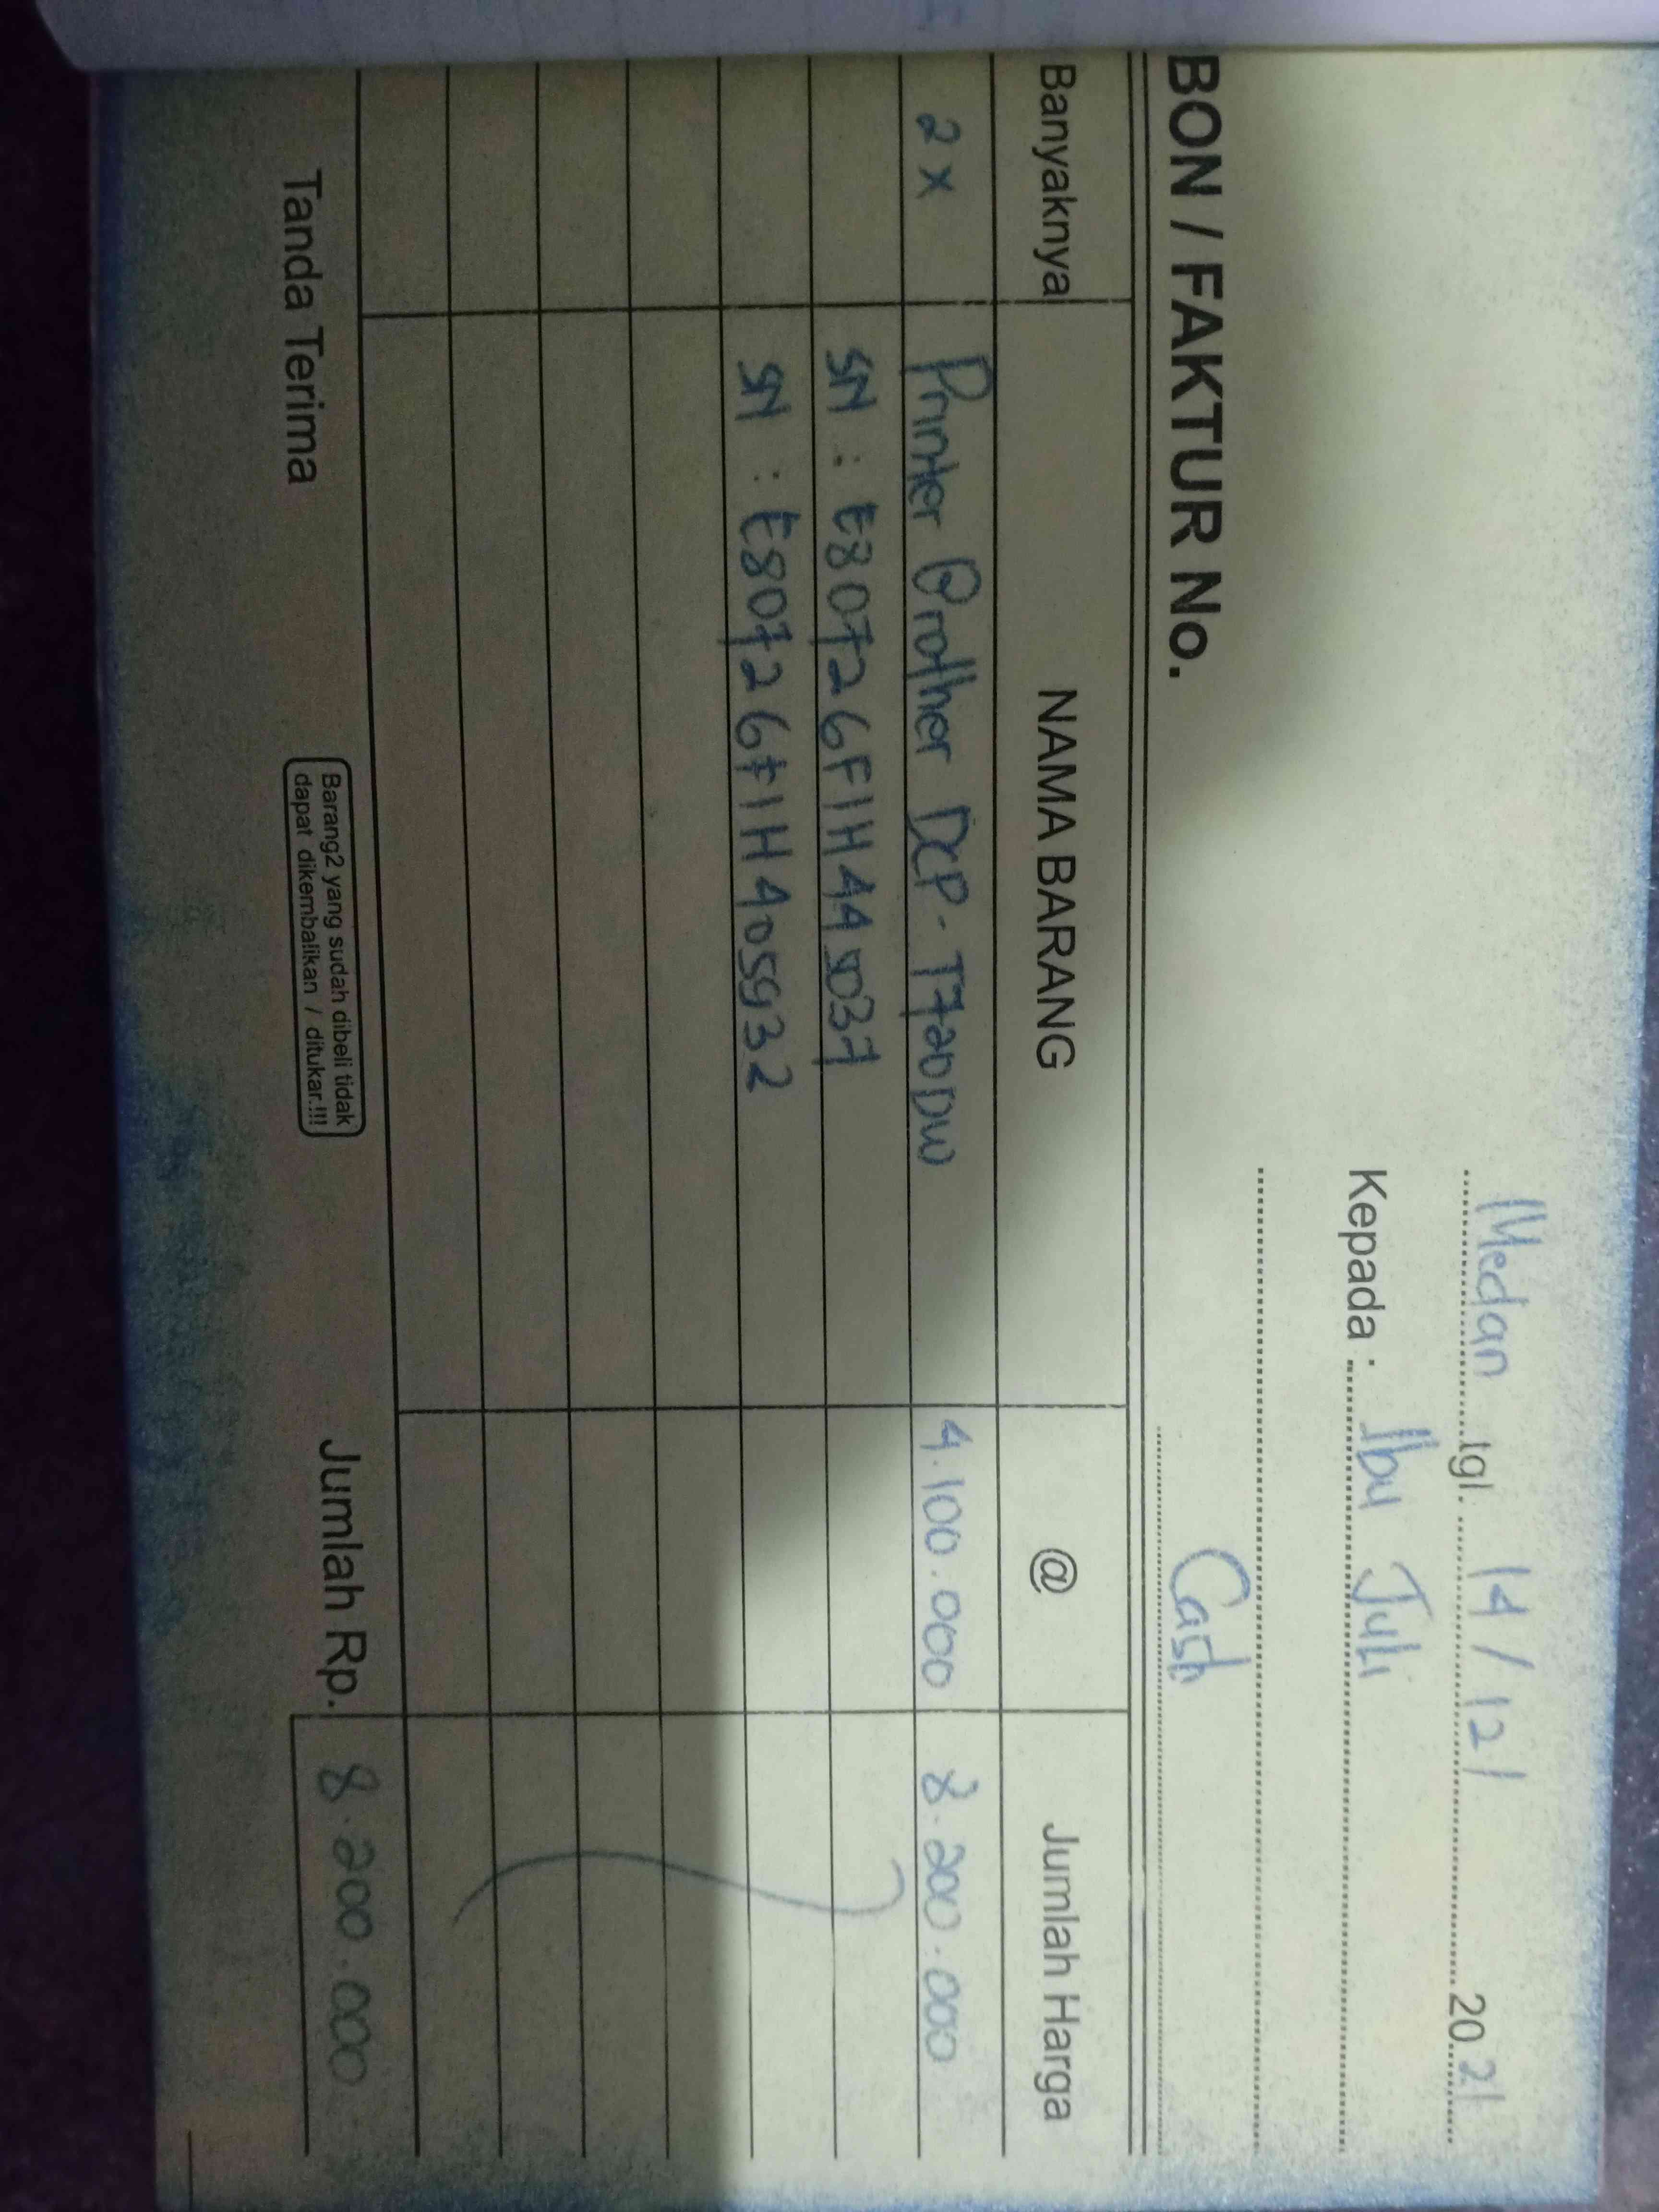 Medan tgl. 14/12/ 2021
Kepada : Ibu Juli
Cash
BON / FAKTUR No.
Banyaknya NAMA BARANG @ Jumlah Harga
2 x Printer Brother DCP-T720DW 4.100.000 8.200.000
SN : E80726F1H449037
SN : E80726F1H405932
Jumlah Rp. 8.200.000
Tanda Terima
Barang2 yang sudah dibeli tidak
dapat dikembalikan / ditukar.!!!